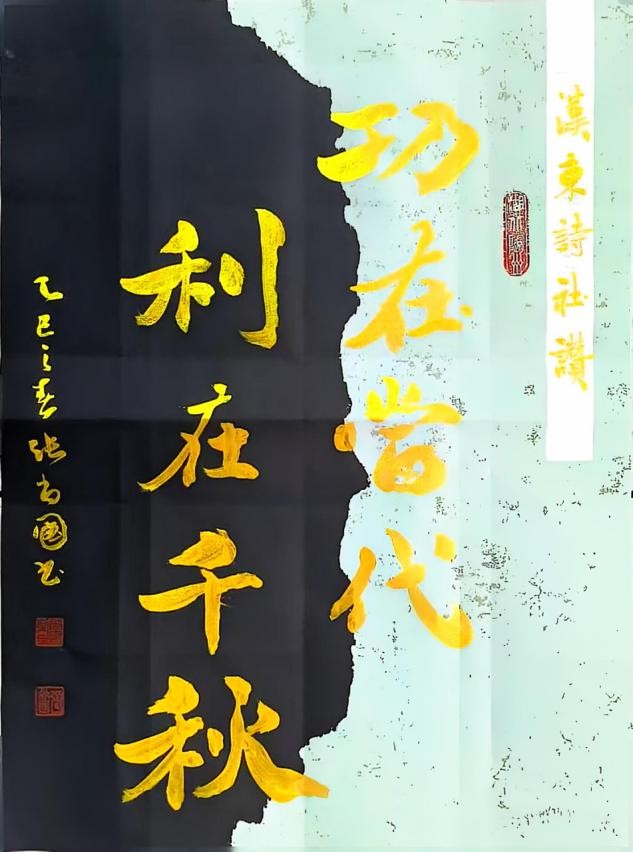 漢東詩社讃
功在當代
利在千秋
乙巳之春張尚國书